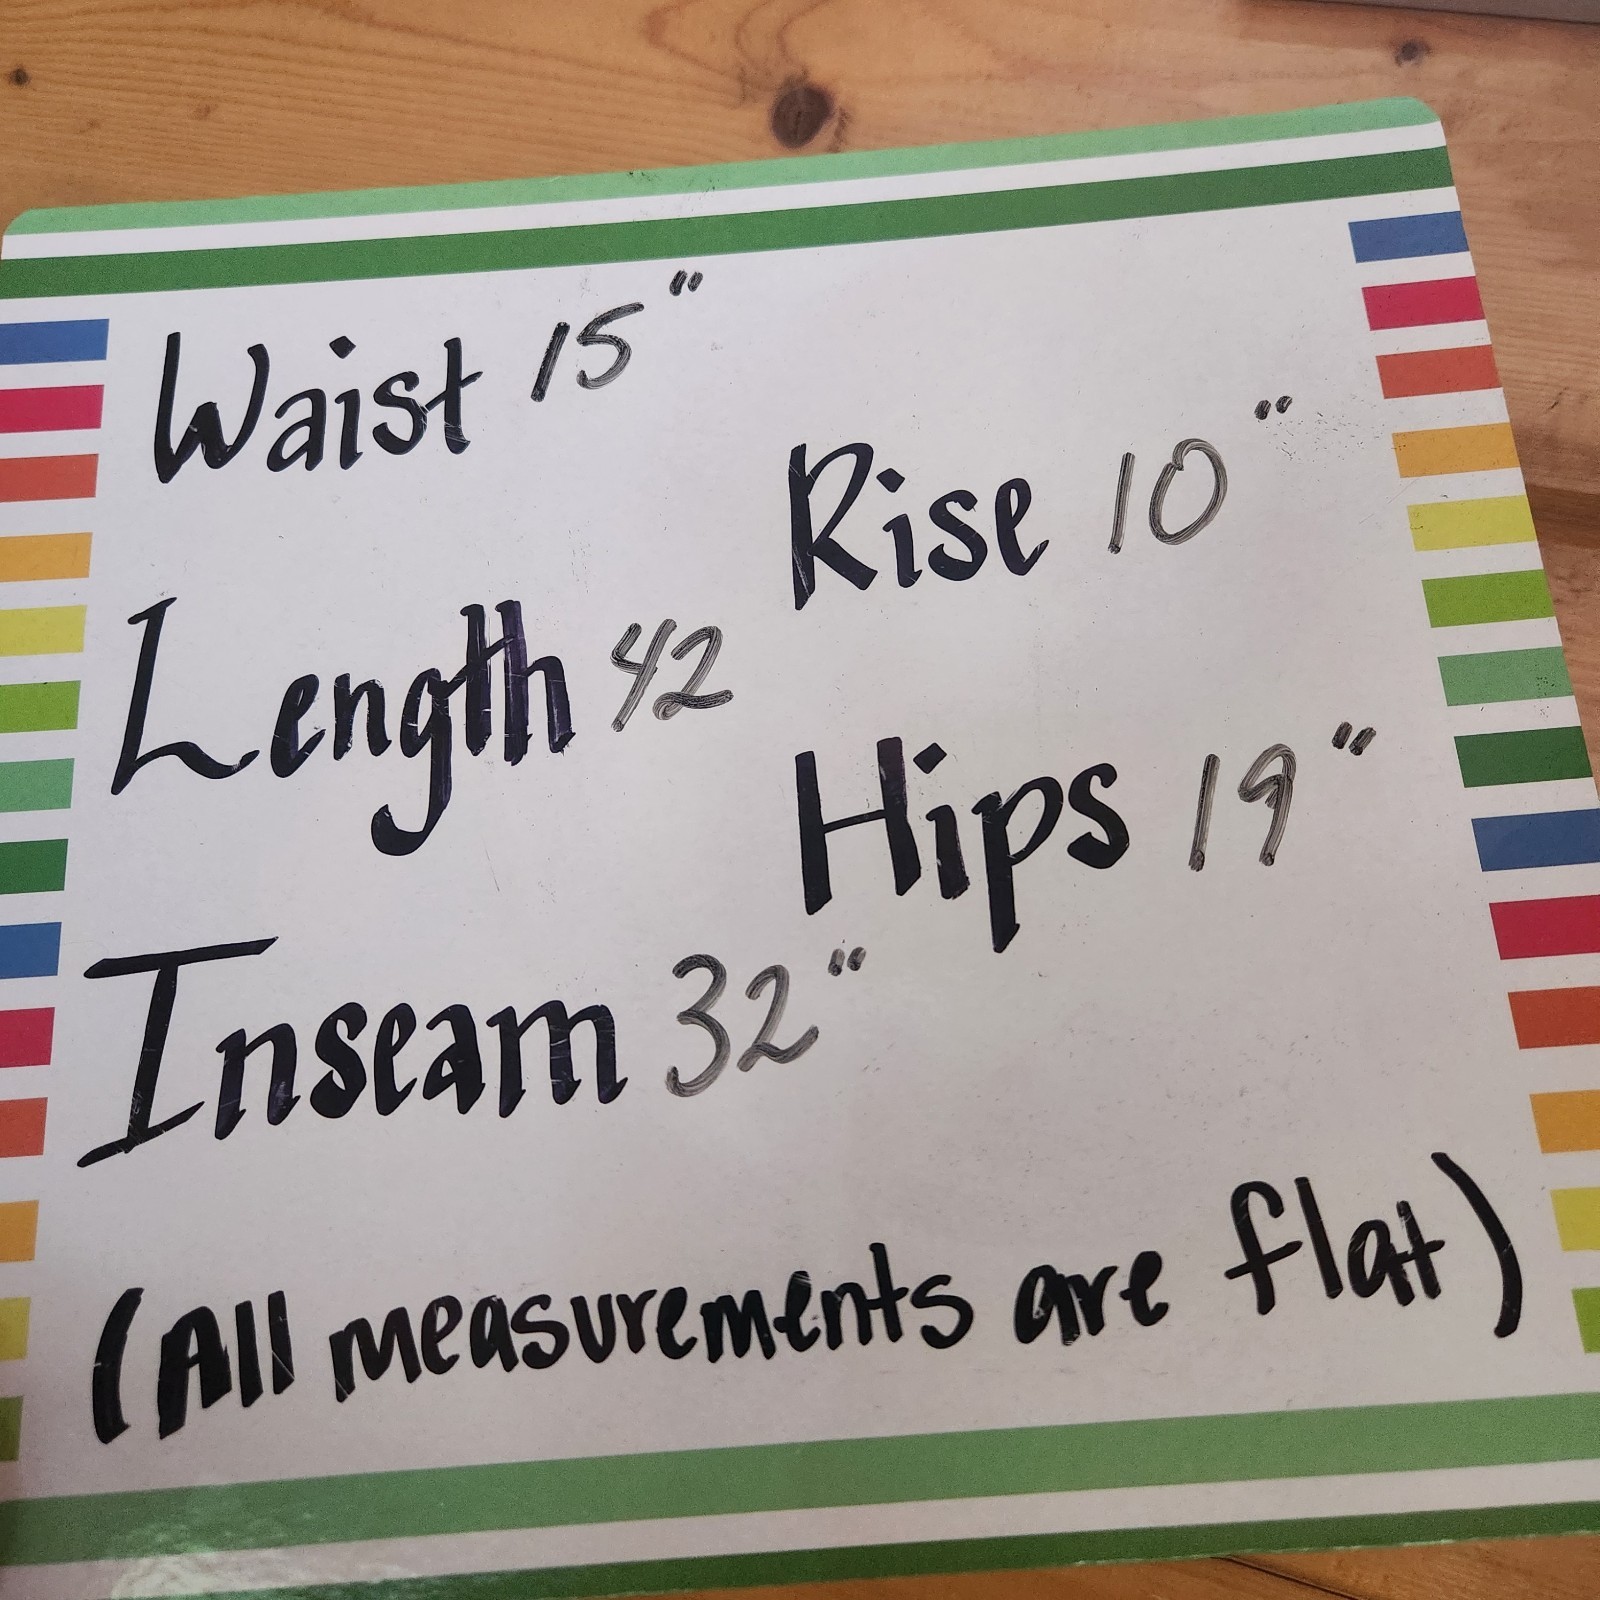 Waist 15"
Rise 10"
Length 42
Hips 19"
Inseam 32"
(All measurements are flat)